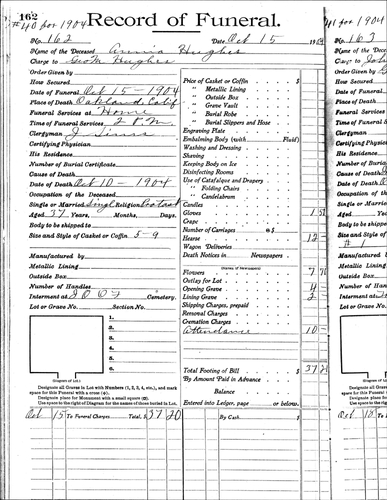 162
#40 for 1904
Record of Funeral.
No. 162
Date Oct 15 1904
Name of the Deceased Annie Hughes
Charge to Geo M Hughes
Order Given by
How Secured
Date of Funeral Oct 15 - 1904
Place of Death Oakland, Calif
Funeral Services at Home
Time of Funeral Services 2 P.M.
Clergyman J. Sims
Certifying Physician
His Residence
Number of Burial Certificate
Cause of Death
Date of Death Oct 10 - 1904
Occupation of the Deceased
Single or Married Single Religion Protest
Aged 37 Years, Months, Days.
Body to be shipped to
Size and Style of Casket or Coffin 5-9
Manufactured by
Metallic Lining
Outside Box
Number of Handles
Interment at I O O F Cemetery.
Lot or Grave No. Section No.
1.
2.
3.
4.
5.
6.
(Diagram of Lot.)
Designate all Graves in Lot with Numbers (1, 2, 3, 4, etc.), and mark
space for this Funeral with a cross (x).
Designate place for Monument with a small square (□).
Use space to right of Diagram for the Names of those buried in Lot.
Price of Casket or Coffin $
" Metallic Lining
" Outside Box
" Grave Vault
" Burial Robe
" Burial Slippers and Hose
Engraving Plate
Embalming Body (with Fluid)
Washing and Dressing
Shaving
Keeping Body on Ice
Disinfecting Rooms
Use of Catafalque and Drapery
" Folding Chairs
" Candelabrum
Candles
Gloves 1
Crape
Number of Carriages @ $
Hearse 12
Wagon Deliveries
Death Notices in Newspapers
(Names of Newspapers)
Flowers 7
Outlay for Lot
Opening Grave 4
Lining Grave 2
Shipping Charges, prepaid
Personal Charges
Cremation Charges
Attendance 10
Total Footing of Bill $ 37 20
By Amount Paid in Advance
Balance
Entered into Ledger, page or below.
Oct 15 To Funeral Charges Total, $ 37 20
By Cash $
41 for 1904
No. 163
Name of the
Charge to
Order Given
How Secured
Date of Fune
Place of Death
Funeral Serv
Time of Fune
Clergyman
Certifying Ph
His Residence
Number of Bu
Cause of Dea
Date of Death
Occupation of
Single or Mar
Aged
Body to be shi
Size and Style
# 1
Manufactured
Metallic Linin
Outside Box
Number of Ha
Interment at
Lot or Grave
(Diagram
Designate
space for this
Designate
Use space to
Oct 18 To